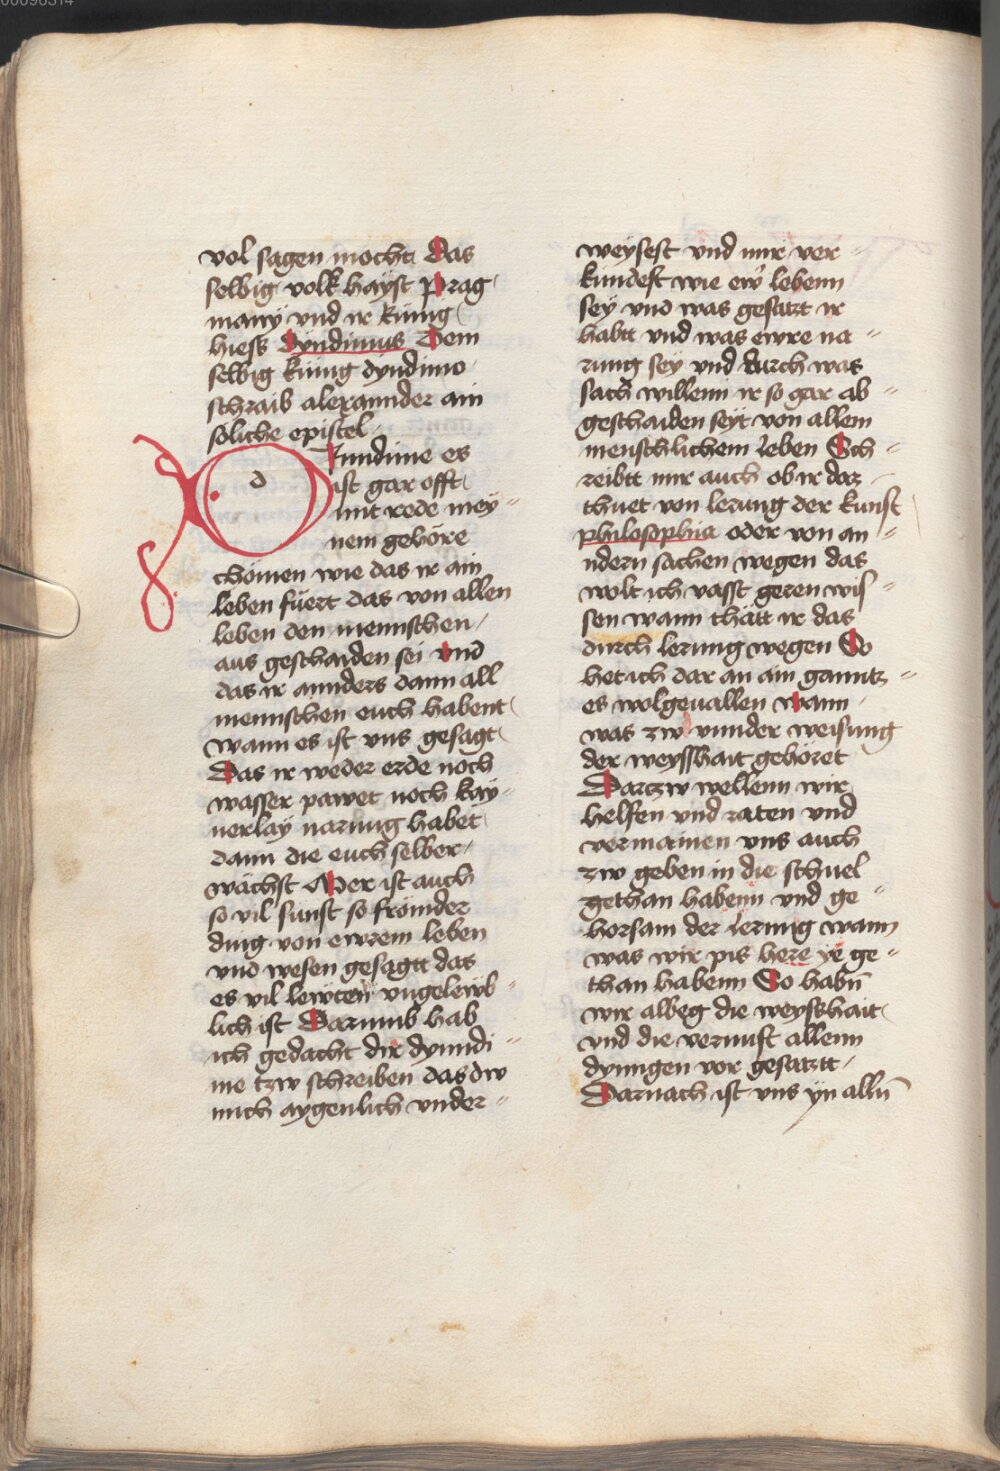 00096314
vol sagen mocht Das
selbig volk hayst Prag
many vnd ir künig
hiess Dyndimus Dem
selbig künig dyndimo
schraib alexannder ain
söliche epistel
d
Jundime es
ist gar offt
mit rede mey
nem gehöre
chömen wie das ir ain
leben füert das von allen
leben den mennschen
aus geschaiden sei vnd
das ir annders dann all
mennschen euch habent
wann es ist vns gesagt
Das ir weder erde noch
wasser pawet noch kay
nerlay narung habet
dann die euch selber
wächst Wer ist auch
so vil sunst so frömder
ding von ewrem leben
vnd wesen gesagtt das
es vil lewten vngelewb
lich ist Darumb hab
ich gedacht dir dynndi
me tzw schreiben das dw
mich aygenlich vnder
weysest vnd mir ver
kündest wie ew lebenn
sey vnd was gesatzt ir
habtt vnd was ewre na
rung sey vnd durch was
sach willenn ir so gar ab
geschaiden seyt von allem
menschlichem leben Sch
reibtt mir auch ob ir daz
thuet von lerung der kunst
philosophia oder von an
ndern sachen wegen das
wolt ich vasst geren wis
sen wann thätt ir das
durch lerung wegen So
het ich dar an ain ganntz
es wolgeuallen wann
was zw vnnder weisung
der weysshait gehöret
Darczw wellenn wir
helfen vnd raten vnd
vermainen vns auch
zw geben in die schuel
gethan habenn vnd ge
horsam der lernng wann
was wir pis here ye ge
than habenn So habn
wir albeg die weysshait
vnd die vernuft allenn
dynngen vor gesatztt
Darnach ist vns yn alln